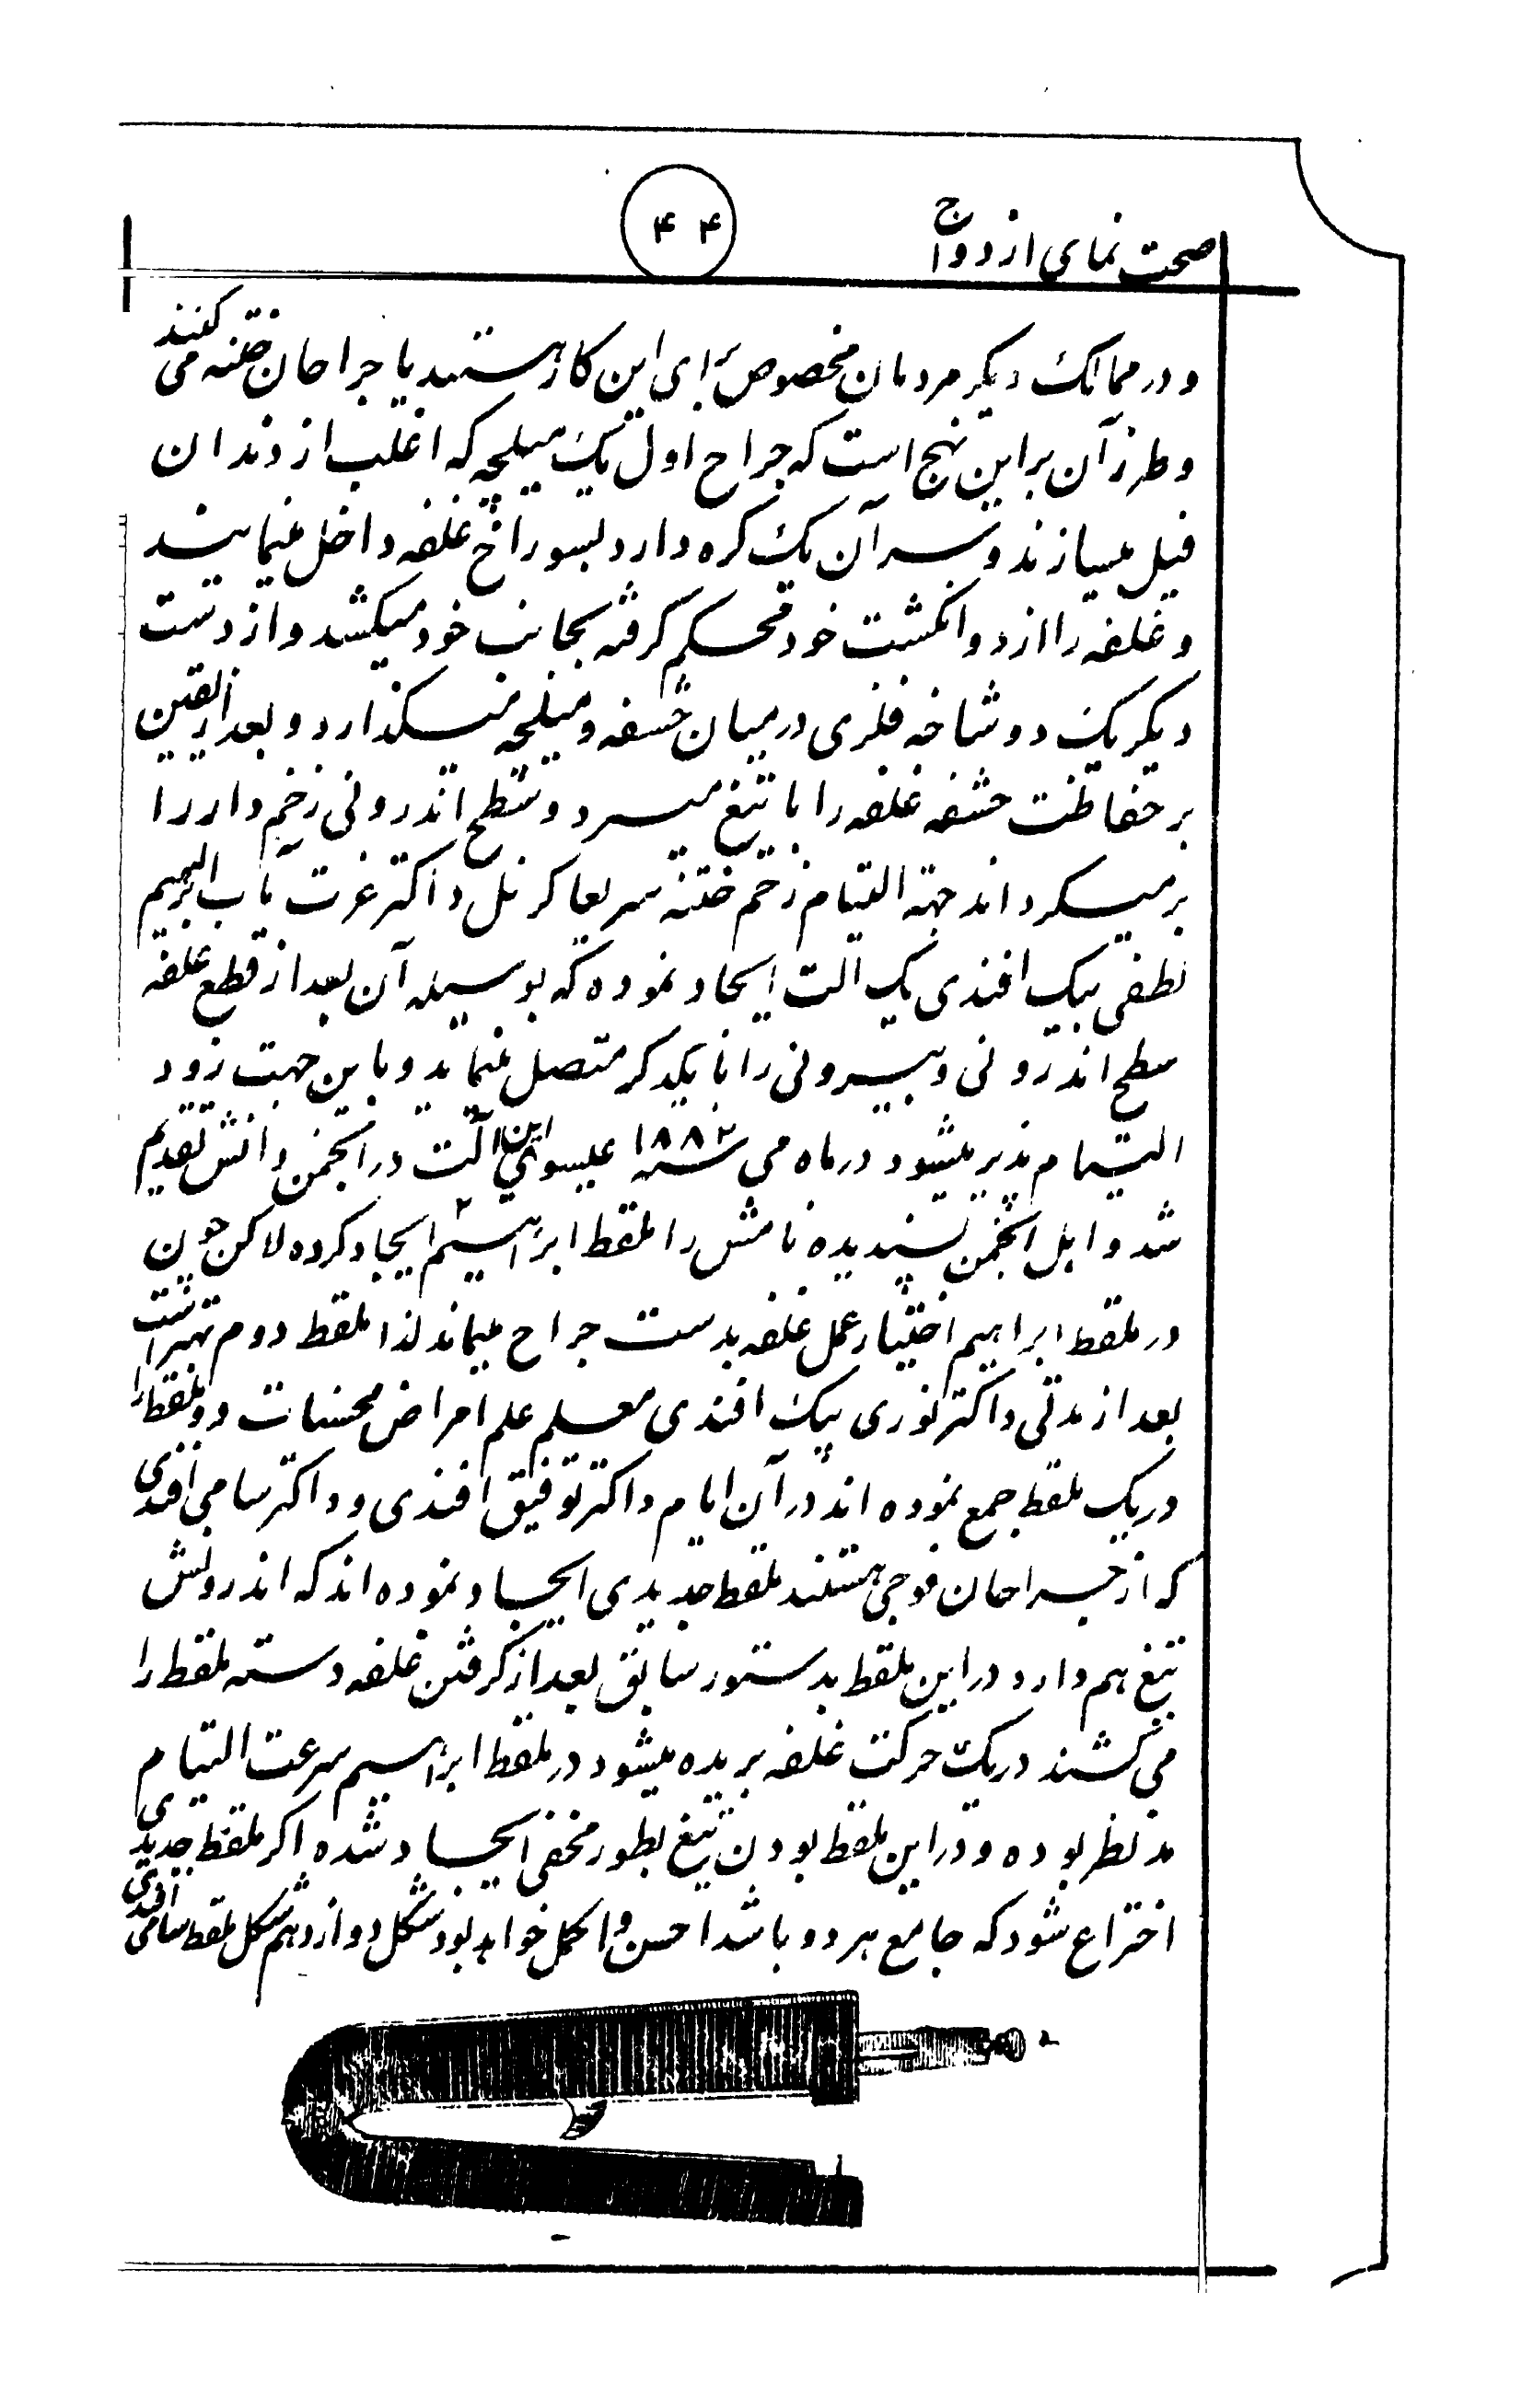 صحت نمای ازدواج
۴۴
و در ممالک دیگر مردمان مخصوص برای این کار هستند یا جراحان ختنه می کنند
و طرز آن بر این نهج است که جراح اول یک میلچه که اغلب از دندان
فیل میسازند و سر آن یک کره دارد بسوراخ غلفه داخل مینماید
و غلفه را از دو انگشت خود محکم گرفته بجانب خود میکشد و از دست
دیگر یک دو شاخه فلزی درمیان حشفه و میلچه میگذارد و بعد از یقین
بر حفاظت حشفه غلفه را با تیغ میبرد و سطح اندرونی زخم دار را
بر میگرداند جهة التیام زخم ختنه سریعا کرنل داکتر عزت مآب ابراهیم
لطفی بیک افندی یک الت ایجاد نموده که بوسیله آن بعد از قطع غلفه
سطح اندرونی و بیرونی را با یکدگر متصل مینماید و باین جهت زود
التیام پذیر میشود در ماه می سنه ۱۸۸۲ عیسوی این الت در انجمن دانش تقدیم
شد و اهل انجمن پسندیده نامش را ملقط ابراهیم ایجاد کرده لاکن چون
در ملقط ابراهیم اختیار عمل غلفه بدست جراح میماند لذا ملقط دوم بهتر است
بعد از مدتی داکتر نوری بیک افندی معلم علم امراض محنسات دو ملقط را
در یک ملقط جمع نموده اند در آن ایام داکتر توفیق افندی و داکتر سامی افندی
که از جراحان فوجی هستند ملقط جدیدی ایجاد نموده اند که اندرونش
تیغ هم دارد در این ملقط بدستور سابق بعد از گرفتن غلفه دسته ملقط را
می کشند در یک حرکت غلفه بریده میشود در ملقط ابراهیم سرعت التیام
مد نظر بوده و در این ملقط بودن تیغ بطور مخفی ایجاد شده اگر ملقط جدیدی
اختراع شود که جامع هر دو باشد احسن و اکمل خواهد بود شکل دوازدهم شکل ملقط سامی افندی